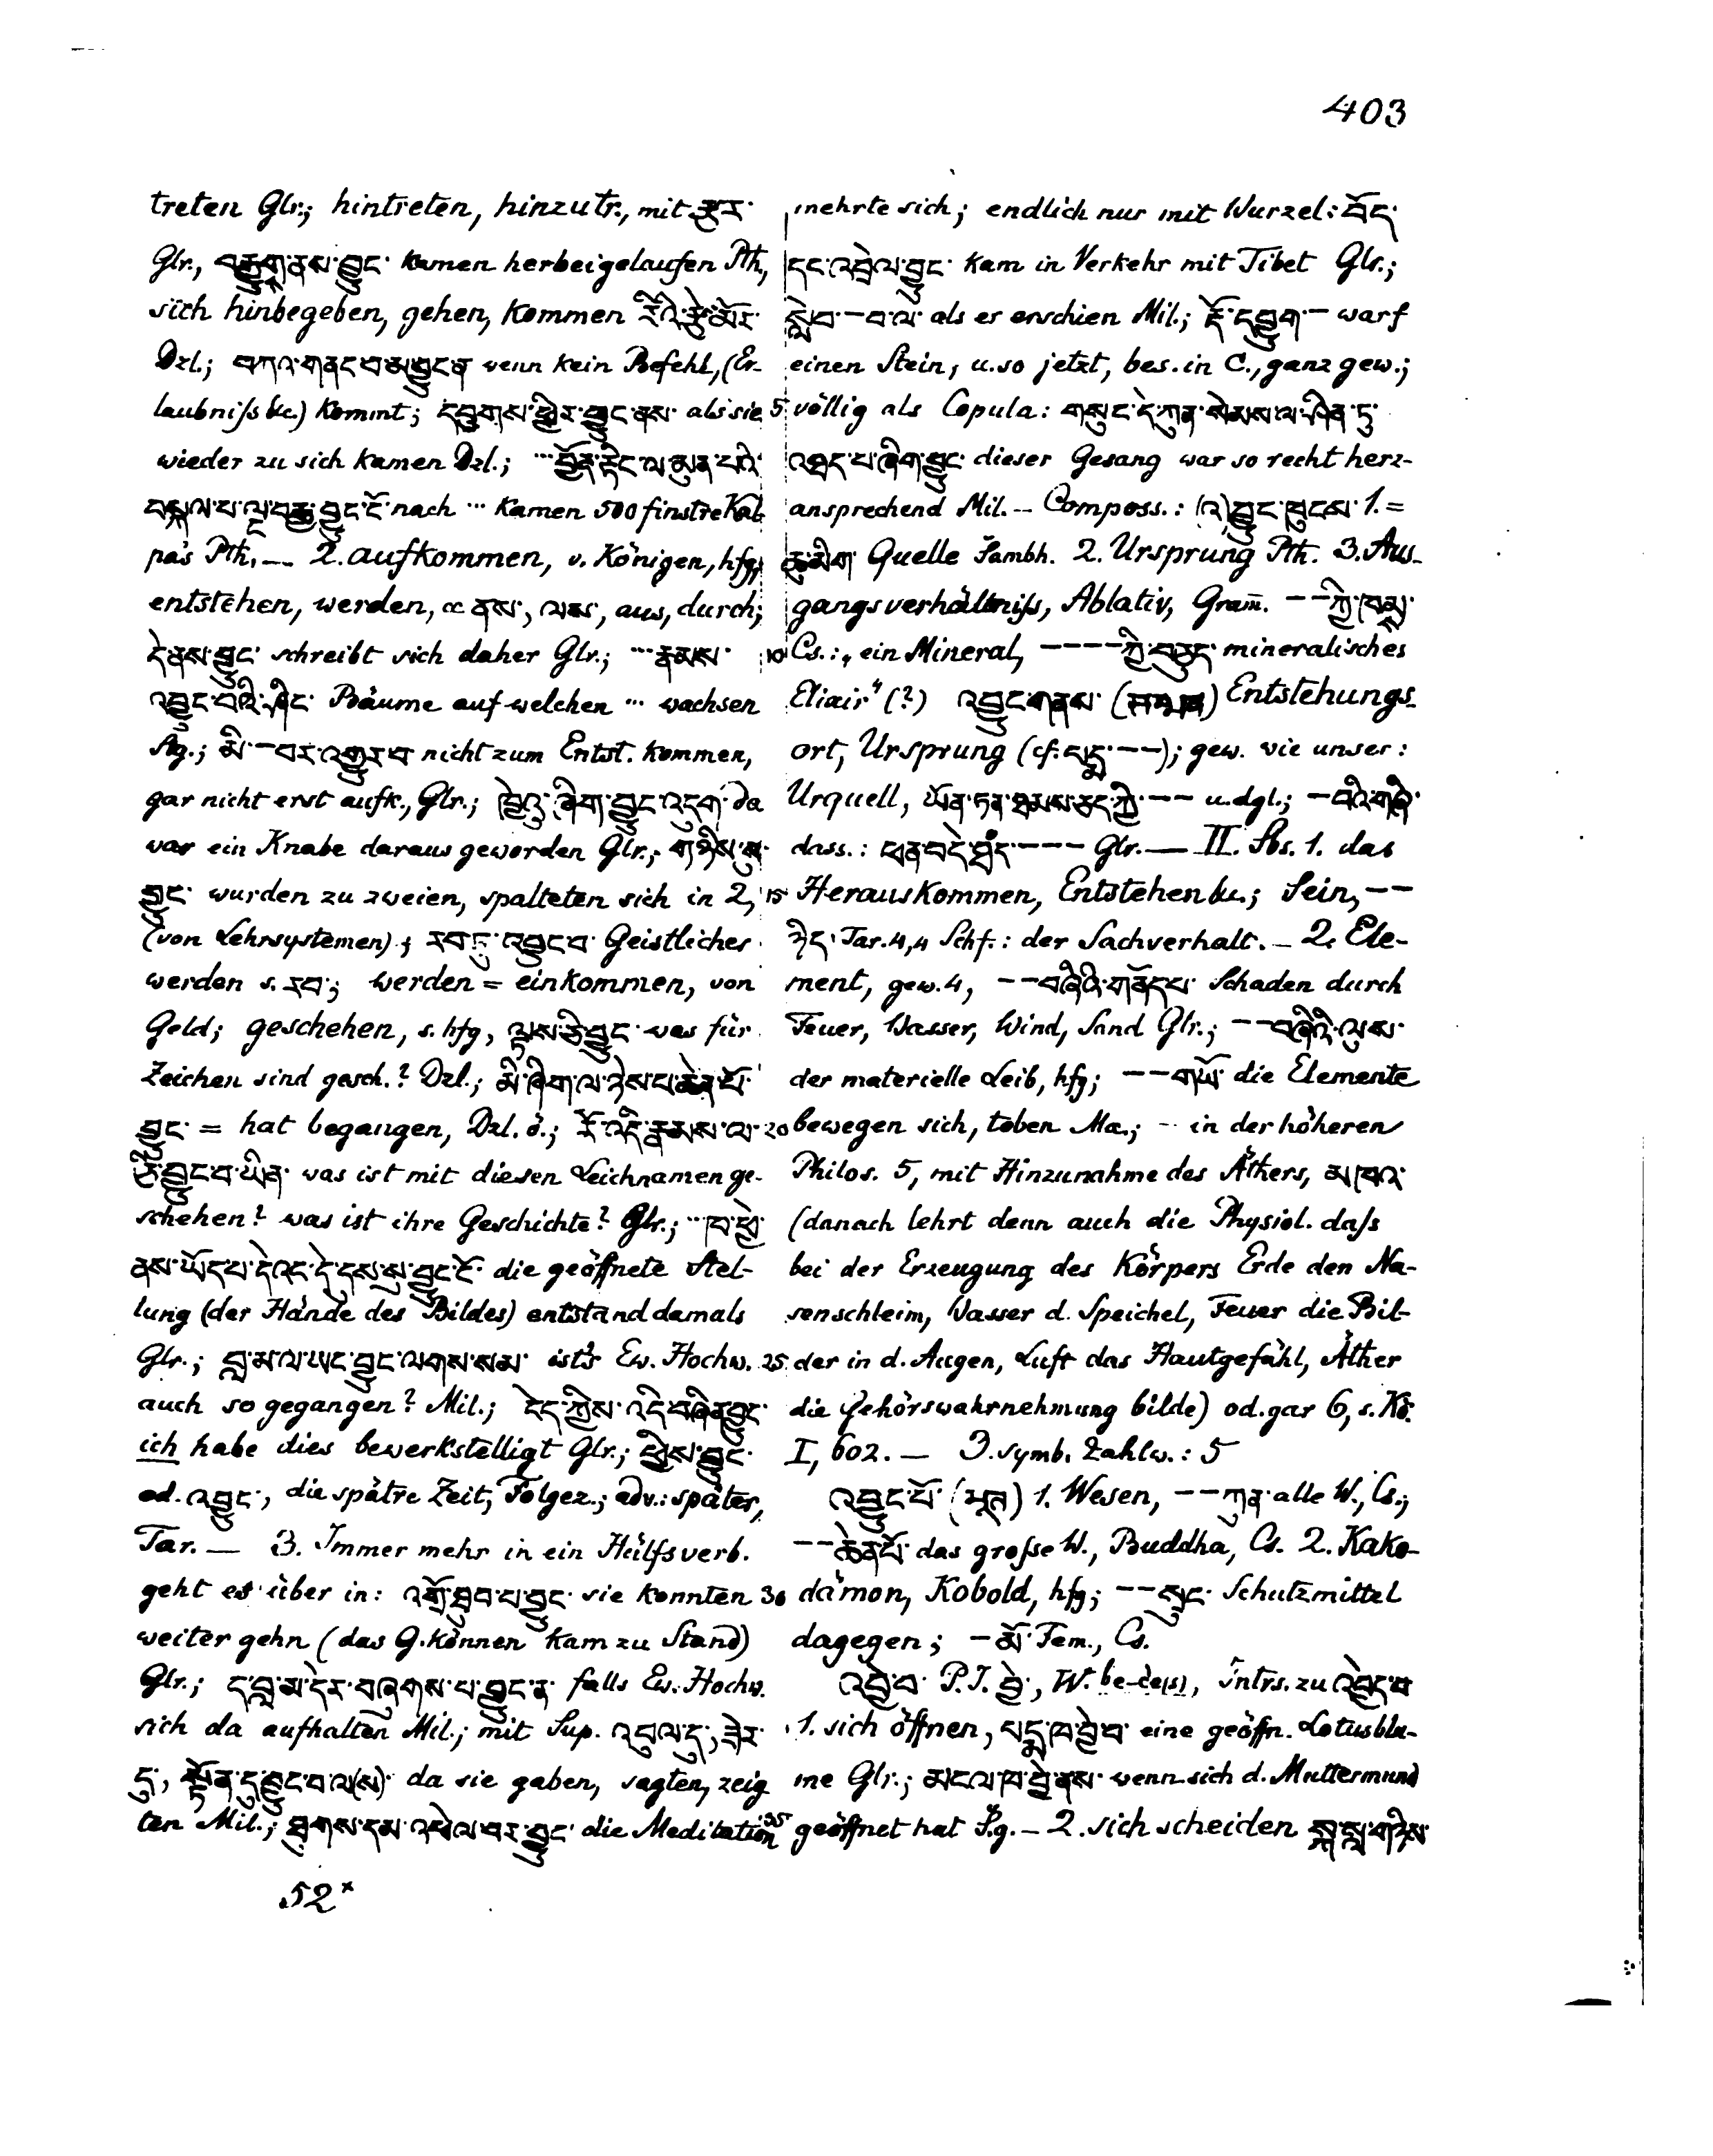 403
treten Glr.; hintreten, hinzutr., mit དྲུང་
Glr., བརྒྱུགནས་བྱུང་ kamen herbeigelaufen Pth,
sich hinbegeben, gehen, kommen རྡོ་རྗེ་
Dzl.; བཀའ་གནང་བ་མབྱུང་ན wenn kein Befehl, (Er-
laubniß &c.) kommt; དབུགས་ཕྱིར་བྱུང་ནས་ als sie
wieder zu sich kamen Dzl.; ...བྱོན་རྟིང་ལ་མུན་པའི་
བསྐལ་པ་ལྔ་བརྒྱ་བྱུང་ངོ་ nach ... kamen 500 finstre Kal-
pa's Pth. — 2. aufkommen, v. Königen, hfg,
entstehen, werden, c ནས་, ལས་, aus, durch;
དེ་ནས་བྱུང་ schreibt sich daher Glr.; ...རྣམས་
འབྱུང་བའི་ཤིང་ Bäume auf welchen ... wachsen
Sg.; མི་–བར་འགྱུར་བ nicht zum Entst. kommen,
gar nicht erst aufk., Glr.; ཁྱེའུ་ཞིག་བྱུང་འདུག་ da
war ein Knabe daraus geworden Glr.; གཉིས་སུ་
བྱུང་ wurden zu zweien, spalteten sich in 2,
(von Lehrsystemen); རབ་ཏུ་འབྱུང་བ Geistlicher
werden s. རབ་; werden = einkommen, von
Geld; geschehen, s. hfg, ལྟས་ཅི་བྱུང་ was für
Zeichen sind gesch.? Dzl.; མི་ཞིག་ལ་ཉེས་པ་ཆེན་པོ་
བྱུང་ = hat begangen, Dzl. ö.; རོ་འདི་རྣམས་ལ་
ཅི་བྱུང་བ་ཡིན་ was ist mit diesen Leichnamen ge-
schehen? was ist ihre Geschichte? Glr.; ...ཁ་ཕྱེ་
ནས་ཡོད་པ་དེའང་དེ་དུས་སུ་བྱུང་ངོ་ die geöffnete Stel-
lung (der Hände des Bildes) entstand damals
Glr.; བླ་མ་ལ་ཡང་བྱུང་ལགས་སམ་ ist's Ew. Hochw.
auch so gegangen? Mil.; ངེད་ཀྱིས་འདི་བཞིན་བྱུང་
ich habe dies bewerkstelligt Glr.; ཕྱིས་བྱུང་
od. འབྱུང་, die spätre Zeit, Folgez.; adv.: später,
Tar. — 3. Immer mehr in ein Hülfsverb.
geht es über in: འགྲོ་ཐུབ་པ་བྱུང་ sie konnten
weiter gehn (das G.können kam zu Stand)
Glr.; ད་བླ་མ་དེར་བཞུགས་པ་བྱུང་ན་ falls Ew. Hochw.
sich da aufhalten Mil.; mit Sup. འབུལ་དུ་, ཟེར་
དུ་, སྟོན་དུ་བྱུང་བ་ལ(ས)་ da sie gaben, sagten, zeig-
ten Mil.; ཐུགས་དམ་འཕེལ་བར་བྱུང་ die Meditation
52*
mehrte sich; endlich nur mit Wurzel: བོད་
དང་འབྲེལ་བྱུང་ kam in Verkehr mit Tibet Glr.;
སླེབ་–བ་ལ་ als er erschien Mil.; རྡོ་དབྱུག་– warf
einen Stein, u. so jetzt, bes. in C., ganz gew.;
5 völlig als Copula: གསུང་དེ་ཀུན་སེམས་ལ་ཤིན་ཏུ་
འཐད་པ་ཞིག་བྱུང་ dieser Gesang war so recht herz-
ansprechend Mil. -- Composs.: (འ)བྱུང་ཁུངས་ 1. =
ཆུ་མིག་ Quelle Sambh. 2. Ursprung Pth. 3. Aus-
gangsverhältniß, Ablativ, Gram. – –ཀྱི་ཁམས་
10 Cs.: „ein Mineral, – – – –ཀྱི་བཅུད་ mineralisches
Elixir" (?) འབྱུང་གནས་ Entstehungs-
ort, Ursprung (cf. པདྨ་– –); gew. wie unser:
Urquell, ཡོན་ཏན་ཐམས་ཅད་ཀྱི་– – u. dgl.; –བའི་གཞི་
dass.: ཕན་བདེ་– – – Glr. — II. Sbs. 1. das
15 Herauskommen, Entstehen &c.; Sein, – –
ཉིད་ Tar. 4,4 Schf.: der Sachverhalt. – 2. Ele-
ment, gew. 4, – –བཞིའི་གནོད་པ་ Schaden durch
Feuer, Wasser, Wind, Sand Glr.; – –བཞིའི་ལུས་
der materielle Leib, hfg; – –གཡོ་ die Elemente
20 bewegen sich, toben Ma.; – in der höheren
Philos. 5, mit Hinzunahme des Äthers, མཁའ་
(danach lehrt denn auch die Physiol. daß
bei der Erzeugung des Körpers Erde den Na-
senschleim, Wasser d. Speichel, Feuer die Bil-
25 der in d. Augen, Luft das Hautgefühl, Äther
die Gehörswahrnehmung bilde) od. gar 6, s. Kö.
I, 602. — 3. symb. Zahlw.: 5
འབྱུང་པོ་ (भूत) 1. Wesen, – –ཀུན་ alle W., Cs.;
– –ཆེན་པོ་ das große W., Buddha, Cs. 2. Kako-
30 dämon, Kobold, hfg; – –སྲུང་ Schutzmittel
dagegen; –མོ་ Fem., Cs.
འབྱེ་བ་ P. I. བྱེ་, W. be-ce(s), intrs. zu འབྱེད་པ
1. sich öffnen, པདྨ་ཁ་བྱེ་བ་ eine geöffn. Lotusblu-
me Glr.; མངལ་ཁ་བྱེ་ནས་ wenn sich d. Muttermund
35 geöffnet hat S.g. – 2. sich scheiden སྐྲ་སྔ་གཉིས་